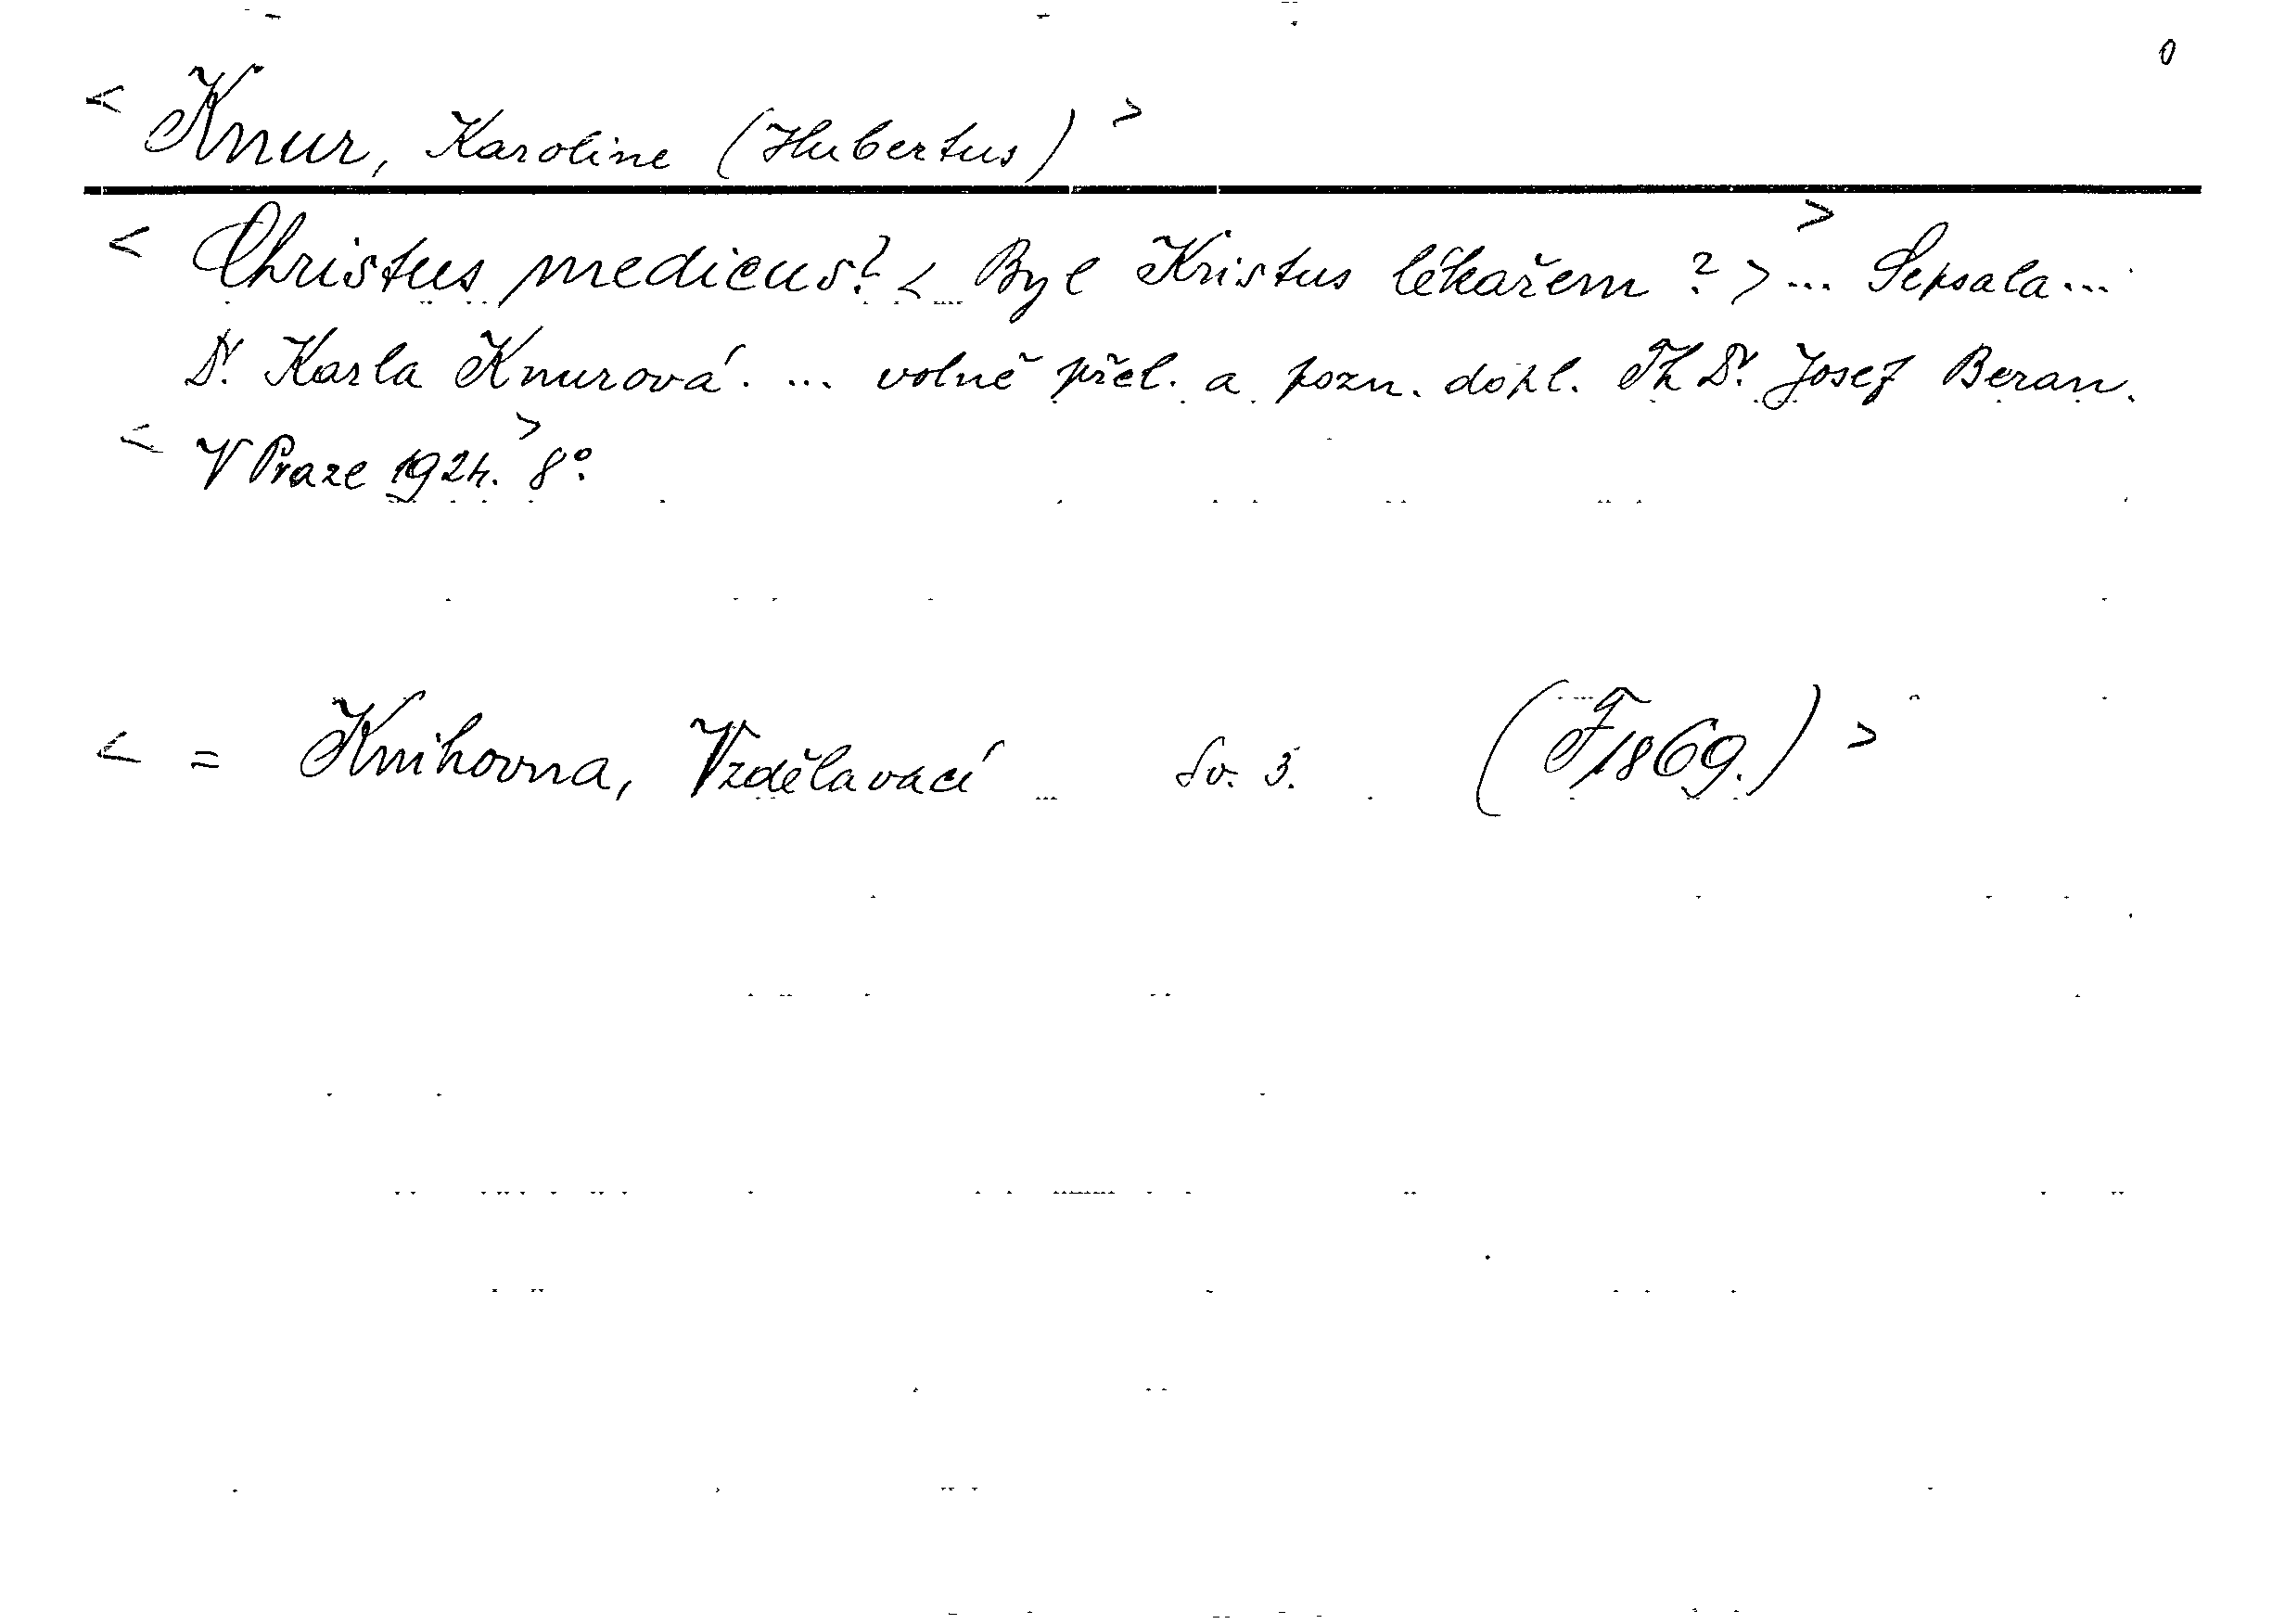 0
< Knur, Karoline (Hubertus) >
< Christus medicus? < Byl Kristus lékařem? > ... > Sepsala...
Dr. Karla Knurová. ... volně přel. a pozn. dopl. Th Dr. Josef Beran.
< V Praze 1924. > 8°.
< = Knihovna, Vzdělavací ... Sv. 3. (F1869.) >